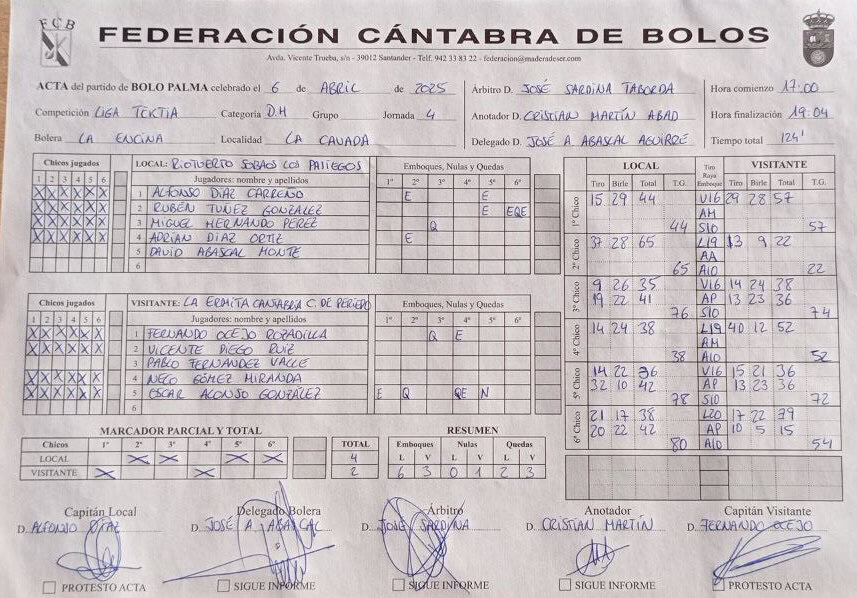 FCB
FEDERACIÓN CÁNTABRA DE BOLOS
Avda. Vicente Trueba, s/n - 39012 Santander - Telf. 942 33 83 22 - federacion@maderadeser.com
ACTA del partido de BOLO PALMA celebrado el 6 de ABRIL de 2025 Árbitro D. JOSÉ SARDINA TABORDA Hora comienzo 17:00
Competición LIGA TEKTIA Categoría D.H Grupo Jornada 4 Anotador D. CRISTIAN MARTÍN ABAD Hora finalización 19:04
Bolera LA ENCINA Localidad LA CAVADA Delegado D. JOSÉ A ABASCAL AGUIRRE Tiempo total 124'
Chicos jugados LOCAL: RIOTUERTO SOBAOS LOS PASIEGOS Emboques, Nulas y Quedas
1 2 3 4 5 6 Jugadores: nombre y apellidos 1º 2º 3º 4º 5º 6º
X X X X X X 1 ALFONSO DÍAZ CARREÑO E E
X X X X X X 2 RUBÉN TUÑEZ GONZÁLEZ E EQE
X X X X X X 3 MIGUEL HERNANDO PÉREZ Q
X X X X X X 4 ADRIÁN DÍAZ ORTIZ E
5 DAVID ABASCAL MONTE
6
Chicos jugados VISITANTE: LA ERMITA CANTABRIA C. DE PERIEDO Emboques, Nulas y Quedas
1 2 3 4 5 6 Jugadores: nombre y apellidos 1º 2º 3º 4º 5º 6º
X X X X X X 1 FERNANDO OCEJO ROZADILLA Q E
X X X X X X 2 VICENTE DIEGO RUIZ
3 PABLO FERNÁNDEZ VALLE
X X X X X X 4 NECO GÓMEZ MIRANDA
X X X X X X 5 OSCAR ALONSO GONZÁLEZ E Q QE N
6
LOCAL Tiro Raya Emboque VISITANTE
Tiro Birle Total T.G. Tiro Birle Total T.G.
1º Chico 15 29 44 V16 29 28 57
AM
44 S10 57
2º Chico 37 28 65 L19 13 9 22
AA
65 A10 22
3º Chico 9 26 35 V16 14 24 38
19 22 41 AP 13 23 36
76 S10 74
4º Chico 14 24 38 L19 40 12 52
AM
38 A10 52
5º Chico 14 22 36 V16 15 21 36
32 10 42 AP 13 23 36
78 S10 72
6º Chico 21 17 38 L20 17 22 39
20 22 42 AP 10 5 15
80 A10 54
MARCADOR PARCIAL Y TOTAL RESUMEN
Chicos 1º 2º 3º 4º 5º 6º TOTAL Emboques Nulas Quedas
LOCAL X X X X 4 L V L V L V
VISITANTE X X 2 6 3 0 1 2 3
Capitán Local Delegado Bolera Árbitro Anotador Capitán Visitante
D. ALFONSO DÍAZ D. JOSÉ A ABASCAL D. JOSÉ SARDINA D. CRISTIAN MARTÍN D. FERNANDO OCEJO
PROTESTO ACTA SIGUE INFORME SIGUE INFORME SIGUE INFORME PROTESTO ACTA